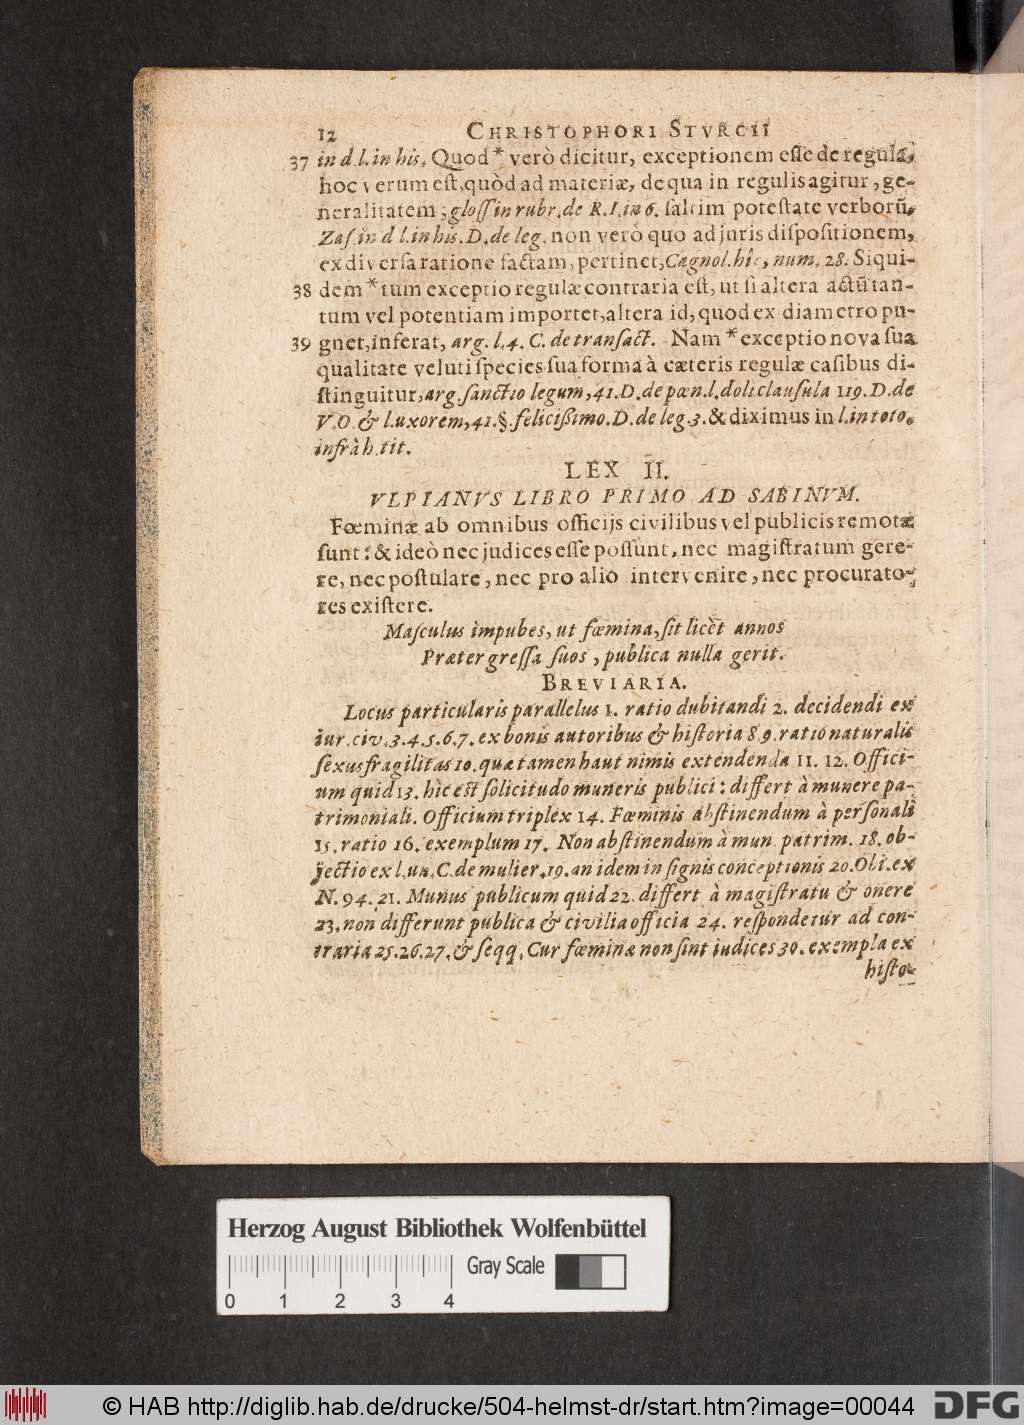 12 CHRISTOPHORI STVRCII
37 in d.l. in his. Quod* verò dicitur, exceptionem esse de regula,
hoc verum est, quòd ad materiæ, de qua in regulis agitur, ge-
neralitatem; gloss in rubr. de R. I. in 6. saltim potestate verborũ.
Zas. in d l. in his. D. de leg. non verò quo ad juris dispositionem,
ex diversa ratione factam, pertinet, Cagnol. hîc, num. 28. Siqui-
38 dem* tum exceptio regulæ contraria est, ut si altera actũ tan-
tum vel potentiam importet, altera id, quod ex diametro pu-
39 gnet, inferat, arg. l. 4. C. de transact. Nam* exceptio nova sua
qualitate veluti species sua forma à cæteris regulæ casibus di-
stinguitur, arg. sanctio legum, 41. D. de pœn. l. doli clausula 119. D. de
V. O. & l. uxorem, 41. §. felicißimo. D. de leg. 3. & diximus in l. in toto.
infrà h. tit.
LEX II.
VLPIANVS LIBRO PRIMO AD SABINVM.
Fœminæ ab omnibus officijs civilibus vel publicis remotæ
sunt: & ideò nec judices esse possunt, nec magistratum gere-
re, nec postulare, nec pro alio intervenire, nec procurato-
res existere.
Masculus impubes, ut fœmina, sit licèt annos
Prætergressa suos, publica nulla gerit.
BREVIARIA.
Locus particularis parallelus 1. ratio dubitandi 2. decidendi ex
iur. civ. 3. 4. 5. 6. 7. ex bonis autoribus & historia 8 9. ratio naturalis
sexus fragilitas 10. quæ tamen haut nimis extendenda 11. 12. Offici-
um quid 13. hîc est solicitudo muneris publici: differt à munere pa-
trimoniali. Officium triplex 14. Fœminis abstinendum à personali
15. ratio 16. exemplum 17. Non abstinendum à mun. patrim. 18. ob-
jectio ex l. un. C. de mulier. 19. an idem in signis conceptionis 20. Obi. ex
N. 94. 21. Munus publicum quid 22. differt à magistratu & onere
23. non differunt publica & civilia officia 24. respondetur ad con-
traria 25. 26. 27. & seqq. Cur fœminæ non sint iudices 30. exempla ex
histo-
Herzog August Bibliothek Wolfenbüttel
Gray Scale
0 1 2 3 4
© HAB http://diglib.hab.de/drucke/504-helmst-dr/start.htm?image=00044
DFG